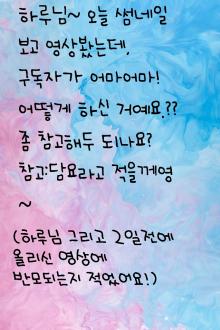 하루님~ 오늘 썸네일
보고 영상봤는데,
구독자가 어마어마!
어떻게 하신 거예요.??
좀 참고해두 되나요?
참고:담요라고 적을게영
~
(하루님 그리고 2일전에
올리신 영상에
반모되는지 적었어요!)